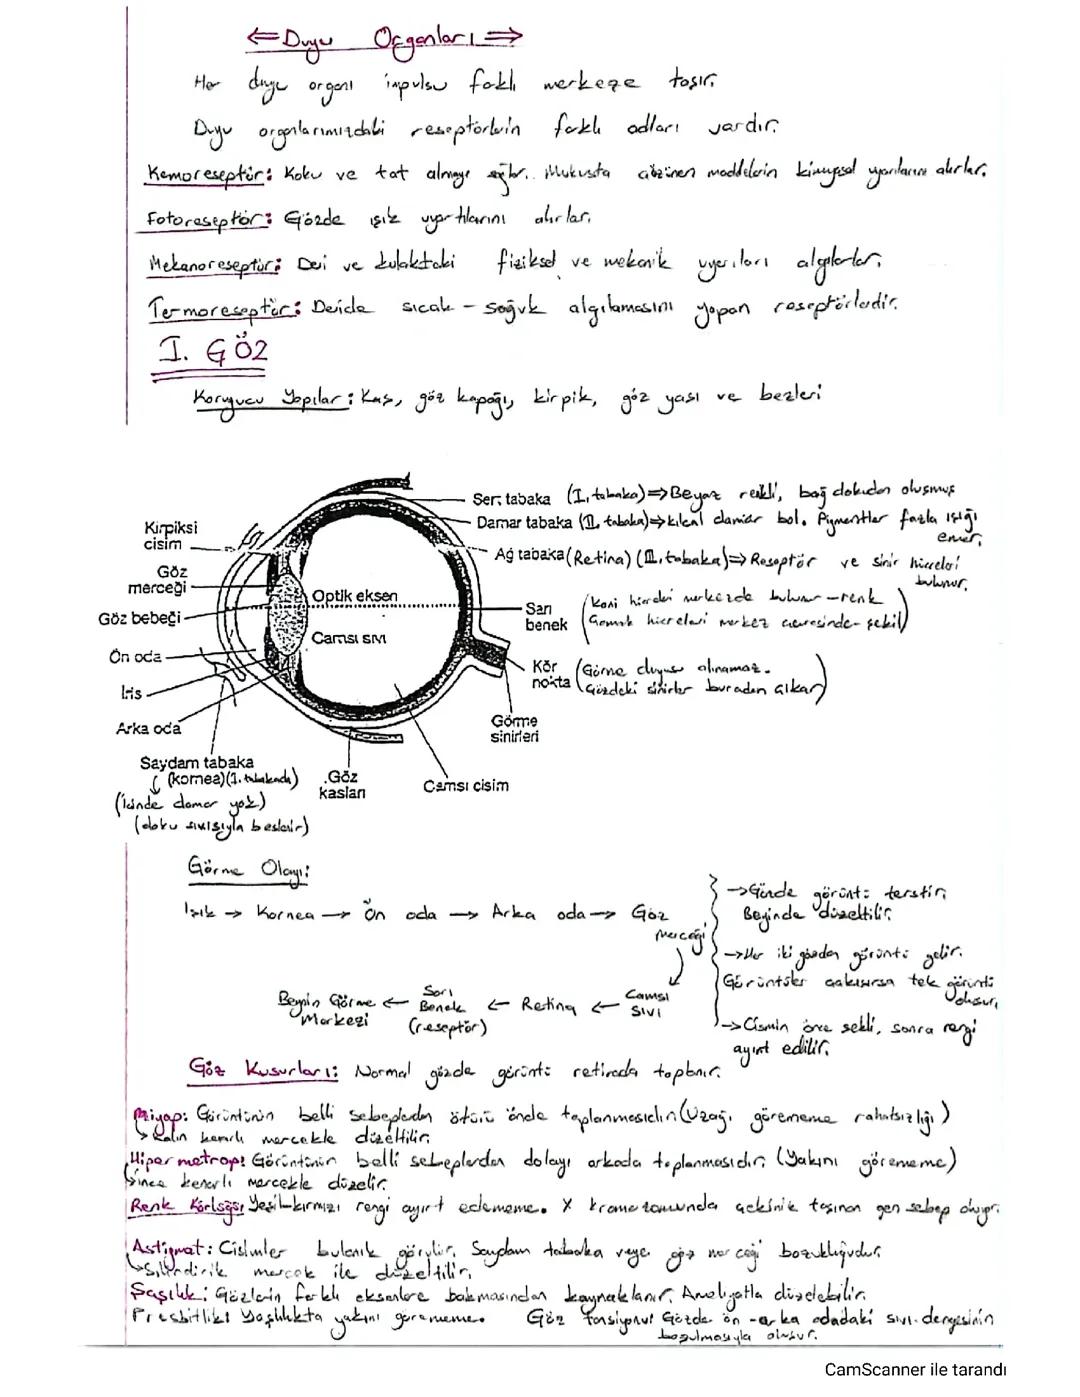 ⇐ Duyu Organları ⇒
Her duyu organı impulsu farklı merkeze taşır.
Duyu organlarımızdaki reseptörlerin farklı adları vardır.
Kemoreseptör: Koku ve tat almayı sağlar. Mukusta çözünen maddelerin kimyasal uyarılarını alırlar.
Fotoreseptör: Gözde ışık uyartılarını alırlar.
Mekanoreseptör: Deri ve kulaktaki fiziksel ve mekanik uyarıları algılarlar.
Termoreseptör: Deride sıcak - soğuk algılamasını yapan reseptörlerdir.
I. GÖZ
Koruyucu Yapılar: Kaş, göz kapağı, kirpik, göz yası ve bezleri
Sert tabaka (I. tabaka) ⇒ Beyaz renkli, bağ dokudan oluşmuş
Damar tabaka (II. tabaka) ⇒ kılcal damar bol. Pigmentler fazla ışığı emer.
Ağ tabaka (Retina) (III. tabaka) ⇒ Reseptör ve sinir hücreleri bulunur.
Kirpiksi cisim
Göz merceği
Göz bebeği
Ön oda
İris
Arka oda
Optik eksen
Camsı sıvı
Sarı benek (Koni hücreleri merkezde bulunur - renk
Çomak hücreleri merkez çevresinde - şekil)
Kör nokta (Görme duyusu alınamaz.
Gözdeki sinirler buradan çıkar)
Görme sinirleri
Saydam tabaka
(kornea) (I. tabakada)
(İçinde damar yok)
(doku sıvısıyla beslenir)
Göz kasları
Camsı cisim
Görme Olayı:
Işık → Kornea → Ön oda → Arka oda → Göz Merceği
Camsı sıvı → Retina → Sarı Benek (reseptör) → Beynin Görme Merkezi
→ Gözde görüntü terstir.
Beyinde düzeltilir.
→ Her iki gözden görüntü gelir.
Görüntüler çakışırsa tek görüntü oluşur.
→ Cismin önce şekli, sonra rengi
ayırt edilir.
Göz Kusurları: Normal gözde görüntü retinada toplanır.
Miyop: Görüntünün belli sebeplerden ötürü önde toplanmasıdır. (Uzağı görememe rahatsızlığı)
→ Kalın kenarlı mercekle düzeltilir.
Hipermetrop: Görüntünün belli sebeplerden dolayı arkada toplanmasıdır. (Yakını görememe)
→ İnce kenarlı mercekle düzelir.
Renk Körlüğü: Yeşil-kırmızı rengi ayırt edememe. X kromozomunda çekinik taşınan gen sebep oluyor.
Astigmat: Cisimler bulanık görülür. Saydam tabaka veya göz merceği bozukluğudur.
→ Silindirik mercek ile düzeltilir.
Şaşılık: Gözlerin farklı eksenlere bakmasından kaynaklanır. Ameliyatla düzelebilir.
Presbitlik: Yaşlılıkta yakını görememe. Göz Tansiyonu: Gözde ön-arka odadaki sıvı dengesinin
bozulmasıyla oluşur.
CamScanner ile tarandı